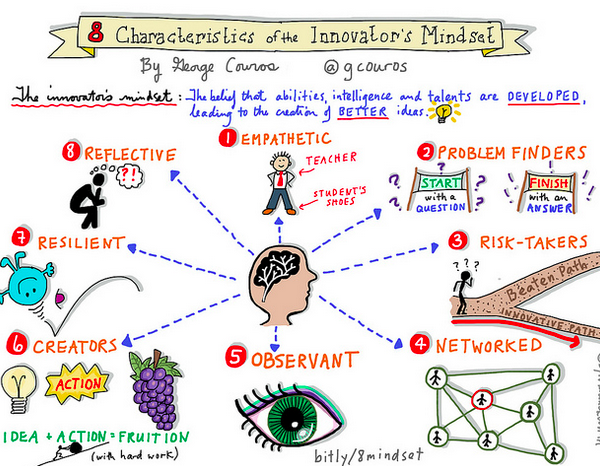 8 Characteristics of the Innovator's Mindset
By George Couros @gcouros
The innovator's mindset: The belief that abilities, intelligence and talents are DEVELOPED,
leading to the creation of BETTER ideas.
1 EMPATHETIC
TEACHER
STUDENT'S
SHOES
2 PROBLEM FINDERS
START
with a
QUESTION
? ? ? ? ?
FINISH
with an
ANSWER
! ! ! !
3 RISK-TAKERS
???
Beaten Path
INNOVATIVE PATH
4 NETWORKED
5 OBSERVANT
bitly/8mindset
6 CREATORS
ACTION
IDEA + ACTION = FRUITION
(with hard work)
7 RESILIENT
8 REFLECTIVE
?!